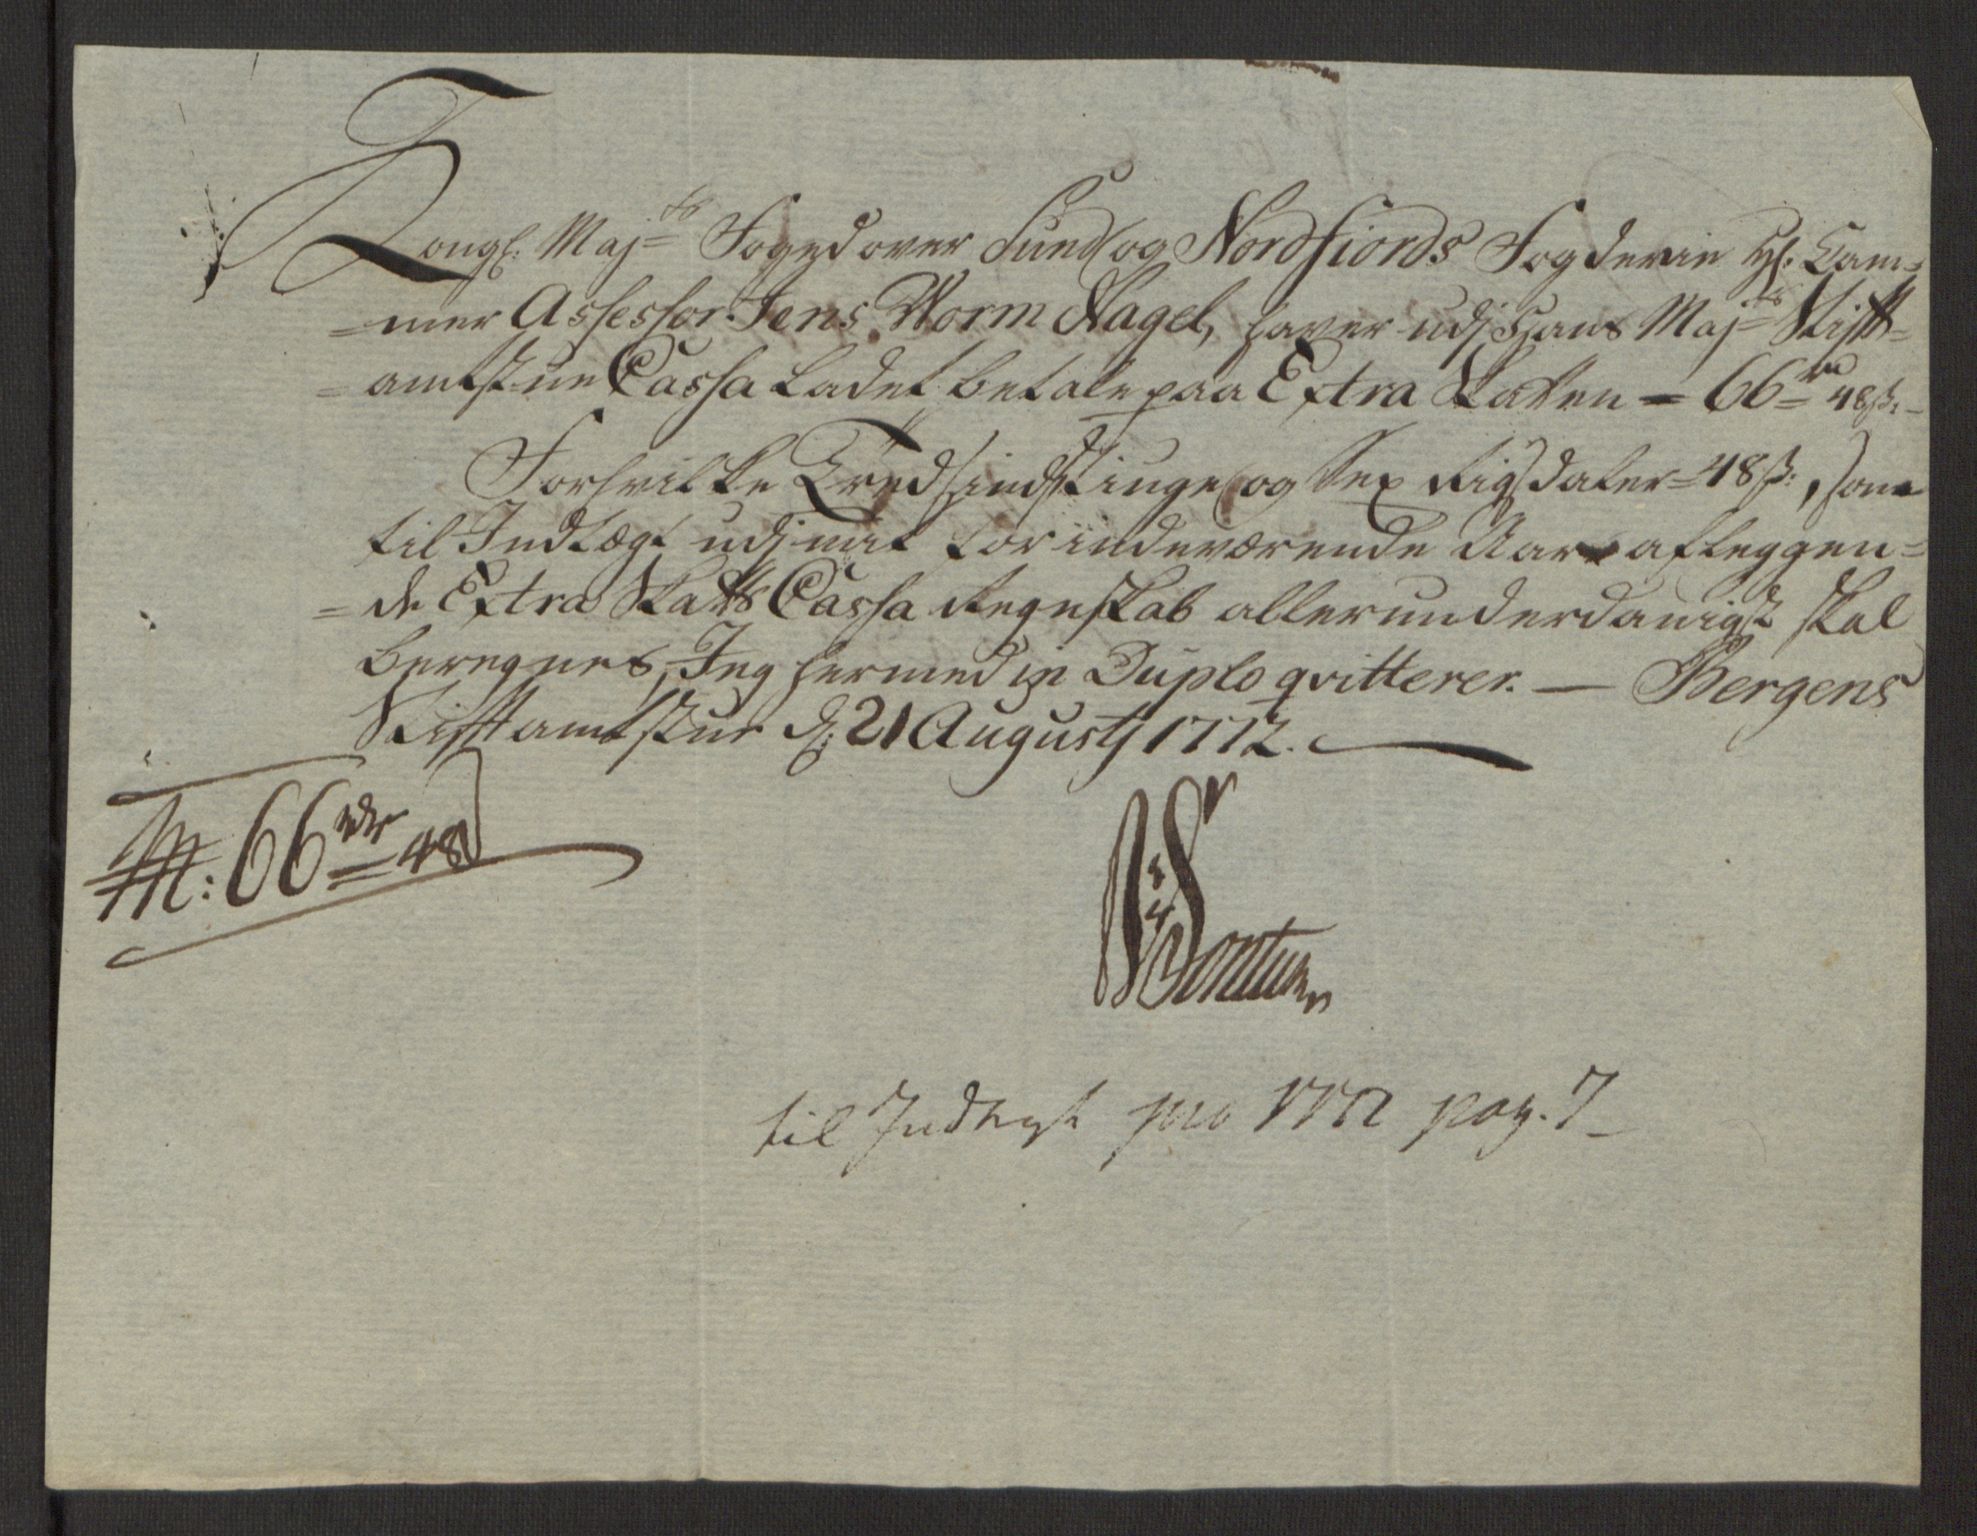 Kongl: Maj:ts Foged over Sund og Nordfiords Fogderie Hr: Cam=
=mer Assessor Jens Worm Nagel, haver udj Hans Maj:ts Stifft=
=amtstue Cassa Ladet betale paa Extra Skatten = 66 rd 48 ß:
Forhvilke Tredsindstiuge og Sex Rigsdaler = 48 ß:, som
til Indtægt udj mit for indeværende Aar afleggen=
=de Extra Skatts Cassa Regnskab allerunderdanigst skal
beregnes, Jeg hermed in Duplo qvitterer. — Bergens
Stifftamtstue d: 21 Augustj 1772.
66 rdr = 48 ß
Sontum
til Indtegt pro 1772 pag. 7